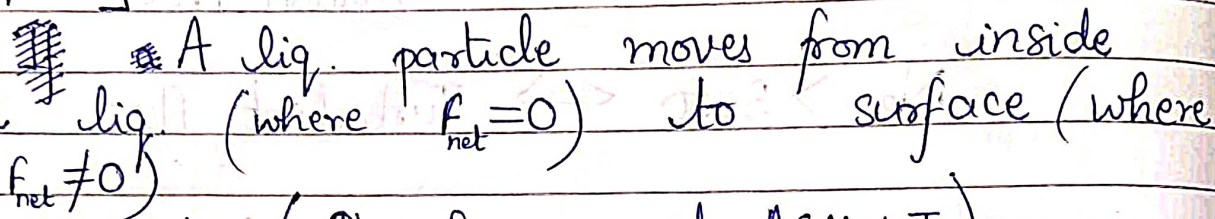 A liq. particle moves from inside
liq. (where f net = 0) to surface (where
f net ≠ 0)